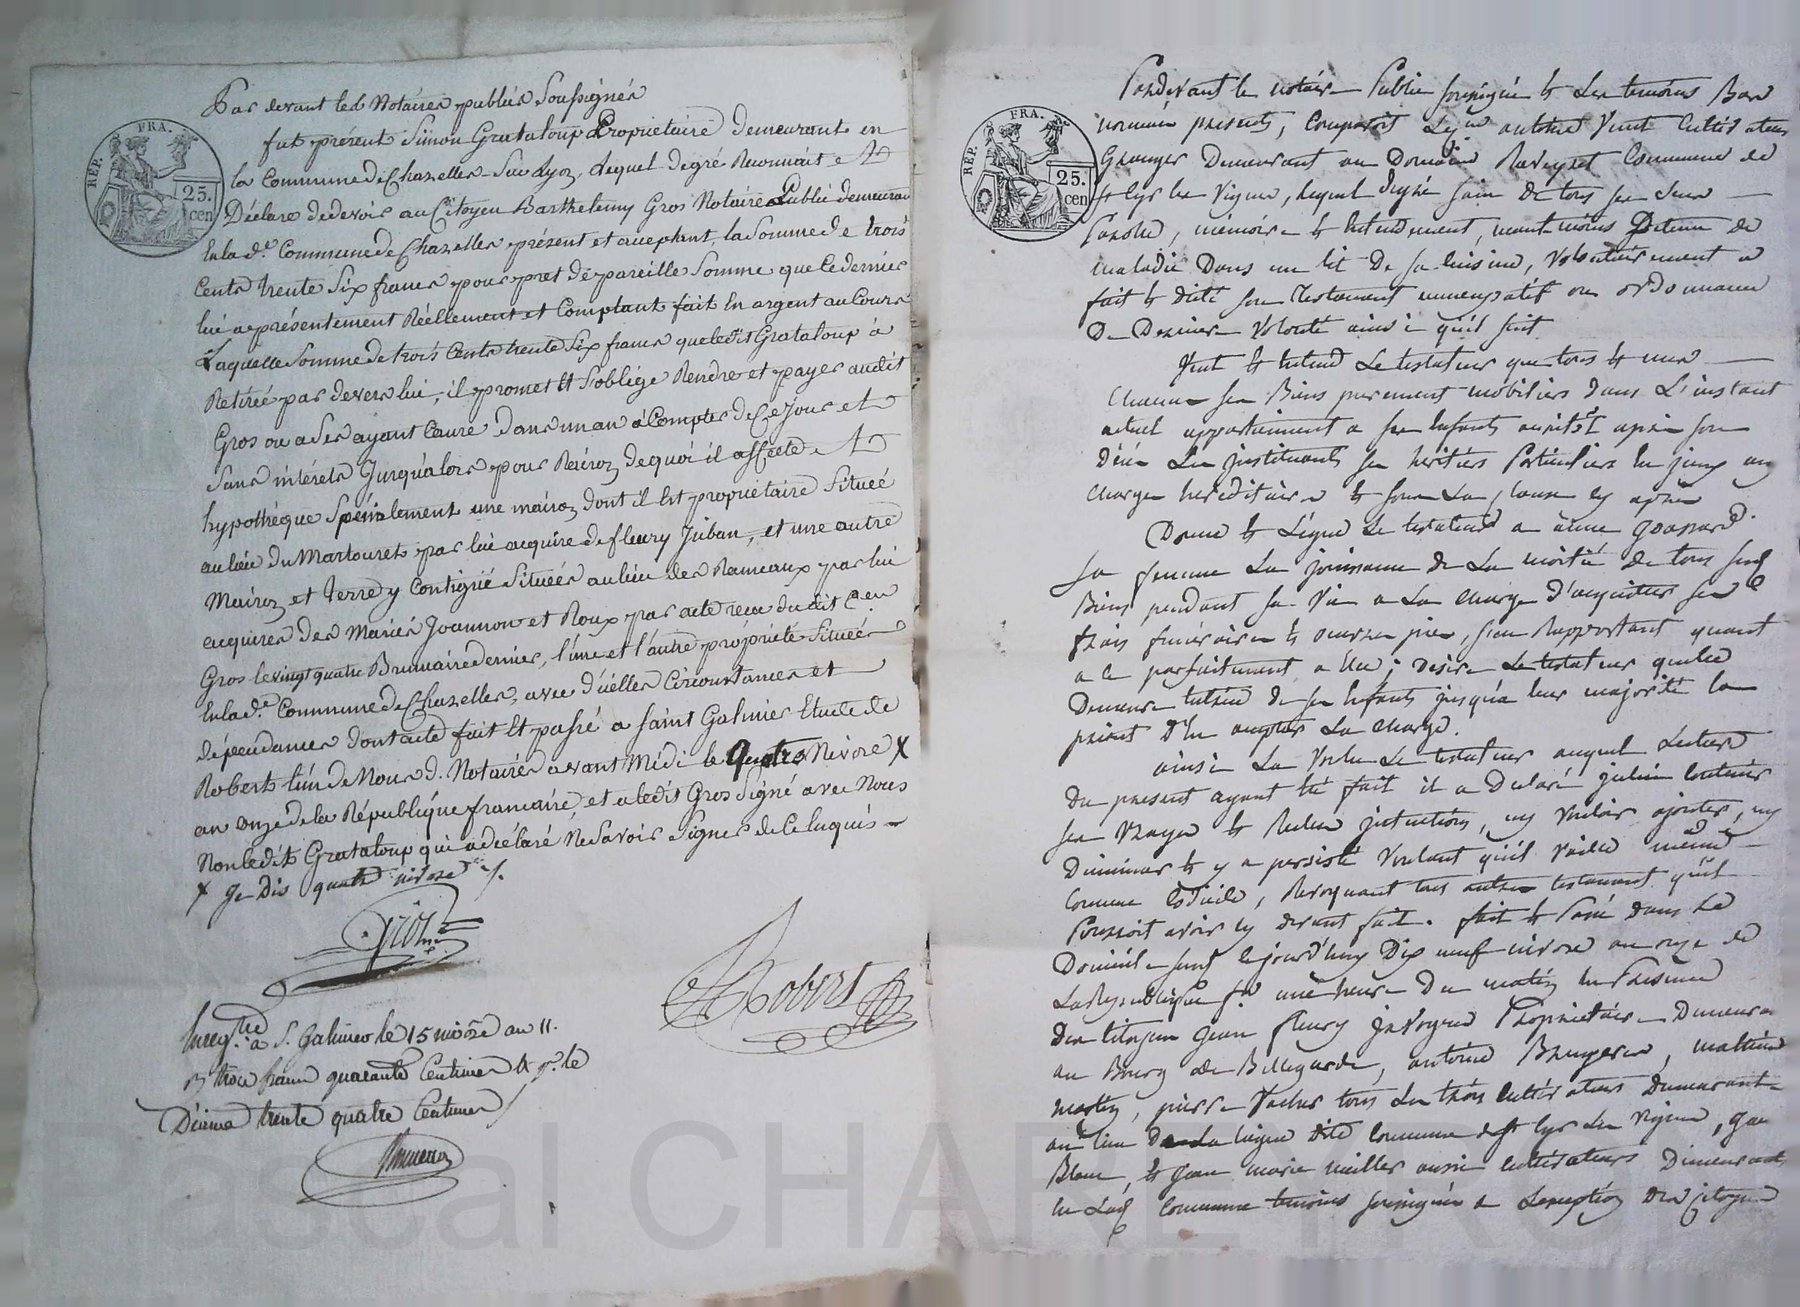 Par devant les Notaires publics Soussignés
fut présent Simon Grataloup Propriétaire demeurant en
la Commune de Chazelles Sur Lyon, Lequel de gré Reconnait et
Déclare de devoir au Citoyen Barthelemy Gros Notaire Public demeurant
En la de. Commune de Chazelles présent et acceptant, la Somme de trois
Cents trente Six francs pour pret de pareille Somme que Ce dernier
lui a présentement Réellement et Comptant fait En argent au Cours
Laquelle Somme de trois Cents trente Six francs que ledit Grataloup à
Retirée par devers lui, il promet Et S'oblige Rendre et payer audit
Gros ou a Ses ayant Cause dans un an à Compter de Ce jour et
Sans intérets Jusqu'alors pour Raison de quoi il affecte et
hypothéque Spécialement une maison dont il Est propriétaire Située
au lieu du Martouret par lui acquise de fleury Juban, et une autre
Maison et terre y Contiguë Situées au lieu des Rameaux par lui
acquises des Mariés Joannon et Roux par acte reçu dudit Cen.
Gros le vingt quatre Brumaire dernier, l'une et l'autre propriété Situées
En la de. Commune de Chazelles, avec d'icelles Circonstances et
dépendances dont acte fait Et passé a Saint Galmier Etude de
Robert l'un de Nous d. Notaires avant Midi le quatre Nivose X
an Onze de la République française, et a ledit Gros Signé avec Nous
Non ledit Grataloup qui a déclaré Ne Savoir Signer de Ce Enquis
X Je Dis quatre nivose
Gros
Robert
Enregtré a St. Galmier le 15 nivose an 11.
R trois francs quarante Centimes Et pr. le
Décime trente quatre Centimes
REP. FRA.
25. cen
REP. FRA.
25. cen
Pardevant le notaire Public soussigné et Les temoins Bas
nommés présents, Comparoit Sr antoine Vent Cultivateur
Granger Demeurant au Domaine Raveyret Commune de
St Cyr les Vignes, lequel De gré sain de tous ses sens
Parole, mémoire et Entendement, neantmoins Detenu de
maladie Dans un lit De sa Cuisine, Volontairement a
fait et dicté son Testament nuncupatif ou ordonnance
De Derniere Volonté ainsi qu'il suit
Veut et Entend Le testateur que tous et un
Chacun ses Biens purement mobiliers Dans L'instant
actuel appartiennent a ses Enfants aussitôt après son
Décès Les Instituants ses heritiers Particuliers En
Charges hereditaires et sous La Clause cy après
Donne et Légue Le testateur a anne
sa femme La jouissance de La moitié de tous ses
Biens pendant sa Vie a La Charge D'acquitter ses
frais funéraires et œuvres pies, s'en Rapportant quant
a ce parfaitement a Elle; Désire Le testateur qu'elle
Demeure tutrice de ses Enfants jusqu'a leur majorité La
priant D'En accepter La Charge.
ainsi La Voulu Le testateur auquel Lecture
Du présent ayant Eté fait il a Declaré Contenir
ses Vrayes et Reelles intentions, n'y Vouloir ajouter, ny
Diminuer et y a persisté Voulant qu'il Vaille même
Comme Codicile, Revoquant tous autres testament qu'il
Pourroit avoir cy devant fait. Fait et Passé Dans Le
Domicile susd. le jourd'huy Dix neuf nivose an onze de
La République fse. une heure Du matin En Présence
Des Citoyens Jean Fleury Javogue Propriétaire Demeurant
au Bourg de Bellegarde, antoine Bruyere, mathieu
Martin, pierre tous Les trois Cultivateurs Demeurant
au lieu De La Commune de St Cyr Les Vignes,
Blanc, et Jean marie aussi Cultivateurs Demeurant
En Lad. Commune temoins soussignés a L'exeption Des Citoyens
Pascal CHAREYRON